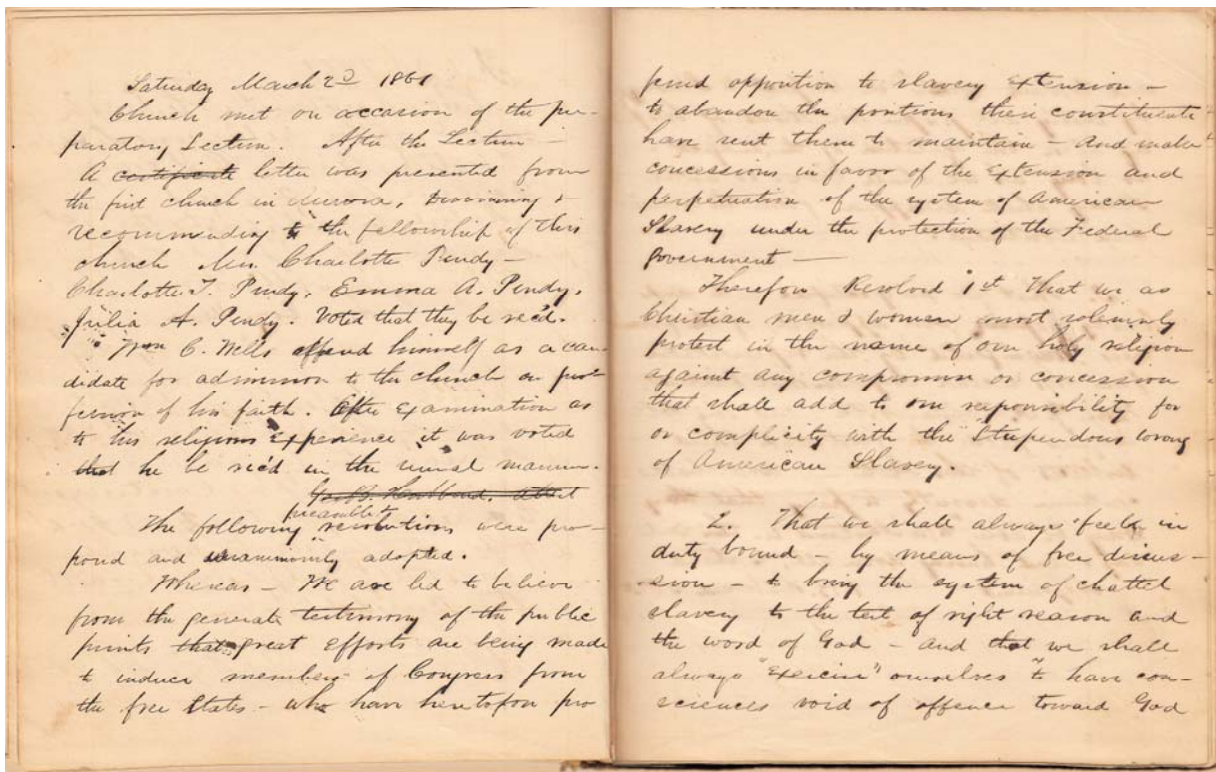 Saturday March 2D 1861
Church met on occasion of the pre-
paratory Lecture. After the Lecture -
A certificate letter was presented from
the first church in Aurora, Dismissing &
recommending to the fellowship of this
church Mrs. Charlotte Purdy -
Charlotte T. Purdy. Emma A. Purdy.
Julia A. Purdy. Voted that they be rec'd.
Wm C. Wells offered himself as a can
didate for admission to the church on pro-
fession of his faith. After Examination as
to his religious Experience it was voted
that he be rec'd in the usual manner.
Attest
preamble &
The following resolutions were pro-
posed and unanimously adopted.
Whereas - We are led to believe
from the general testimony of the public
prints that great Efforts are being made
to induce members of Congress from
the free States - who have heretofore pro
fessed opposition to slavery Extension -
to abandon the positions their constituents
have sent them to maintain - And make
concessions in favor of the Extension and
perpetuation of the system of American
Slavery under the protection of the Federal
Government -
Therefore Resolved 1st That we as
Christian men & women most solemnly
protest in the name of our holy religion
against any compromise or concession
that shall add to our responsibility for
or complicity with the Stupendous wrong
of American Slavery.
2. That we shall always feel in
duty bound - by means of free discus-
sion - to bring the system of chattel
slavery to the test of right reason and
the word of God - and that we shall
always "Exercise" ourselves "to have con-
sciences void of offence toward God